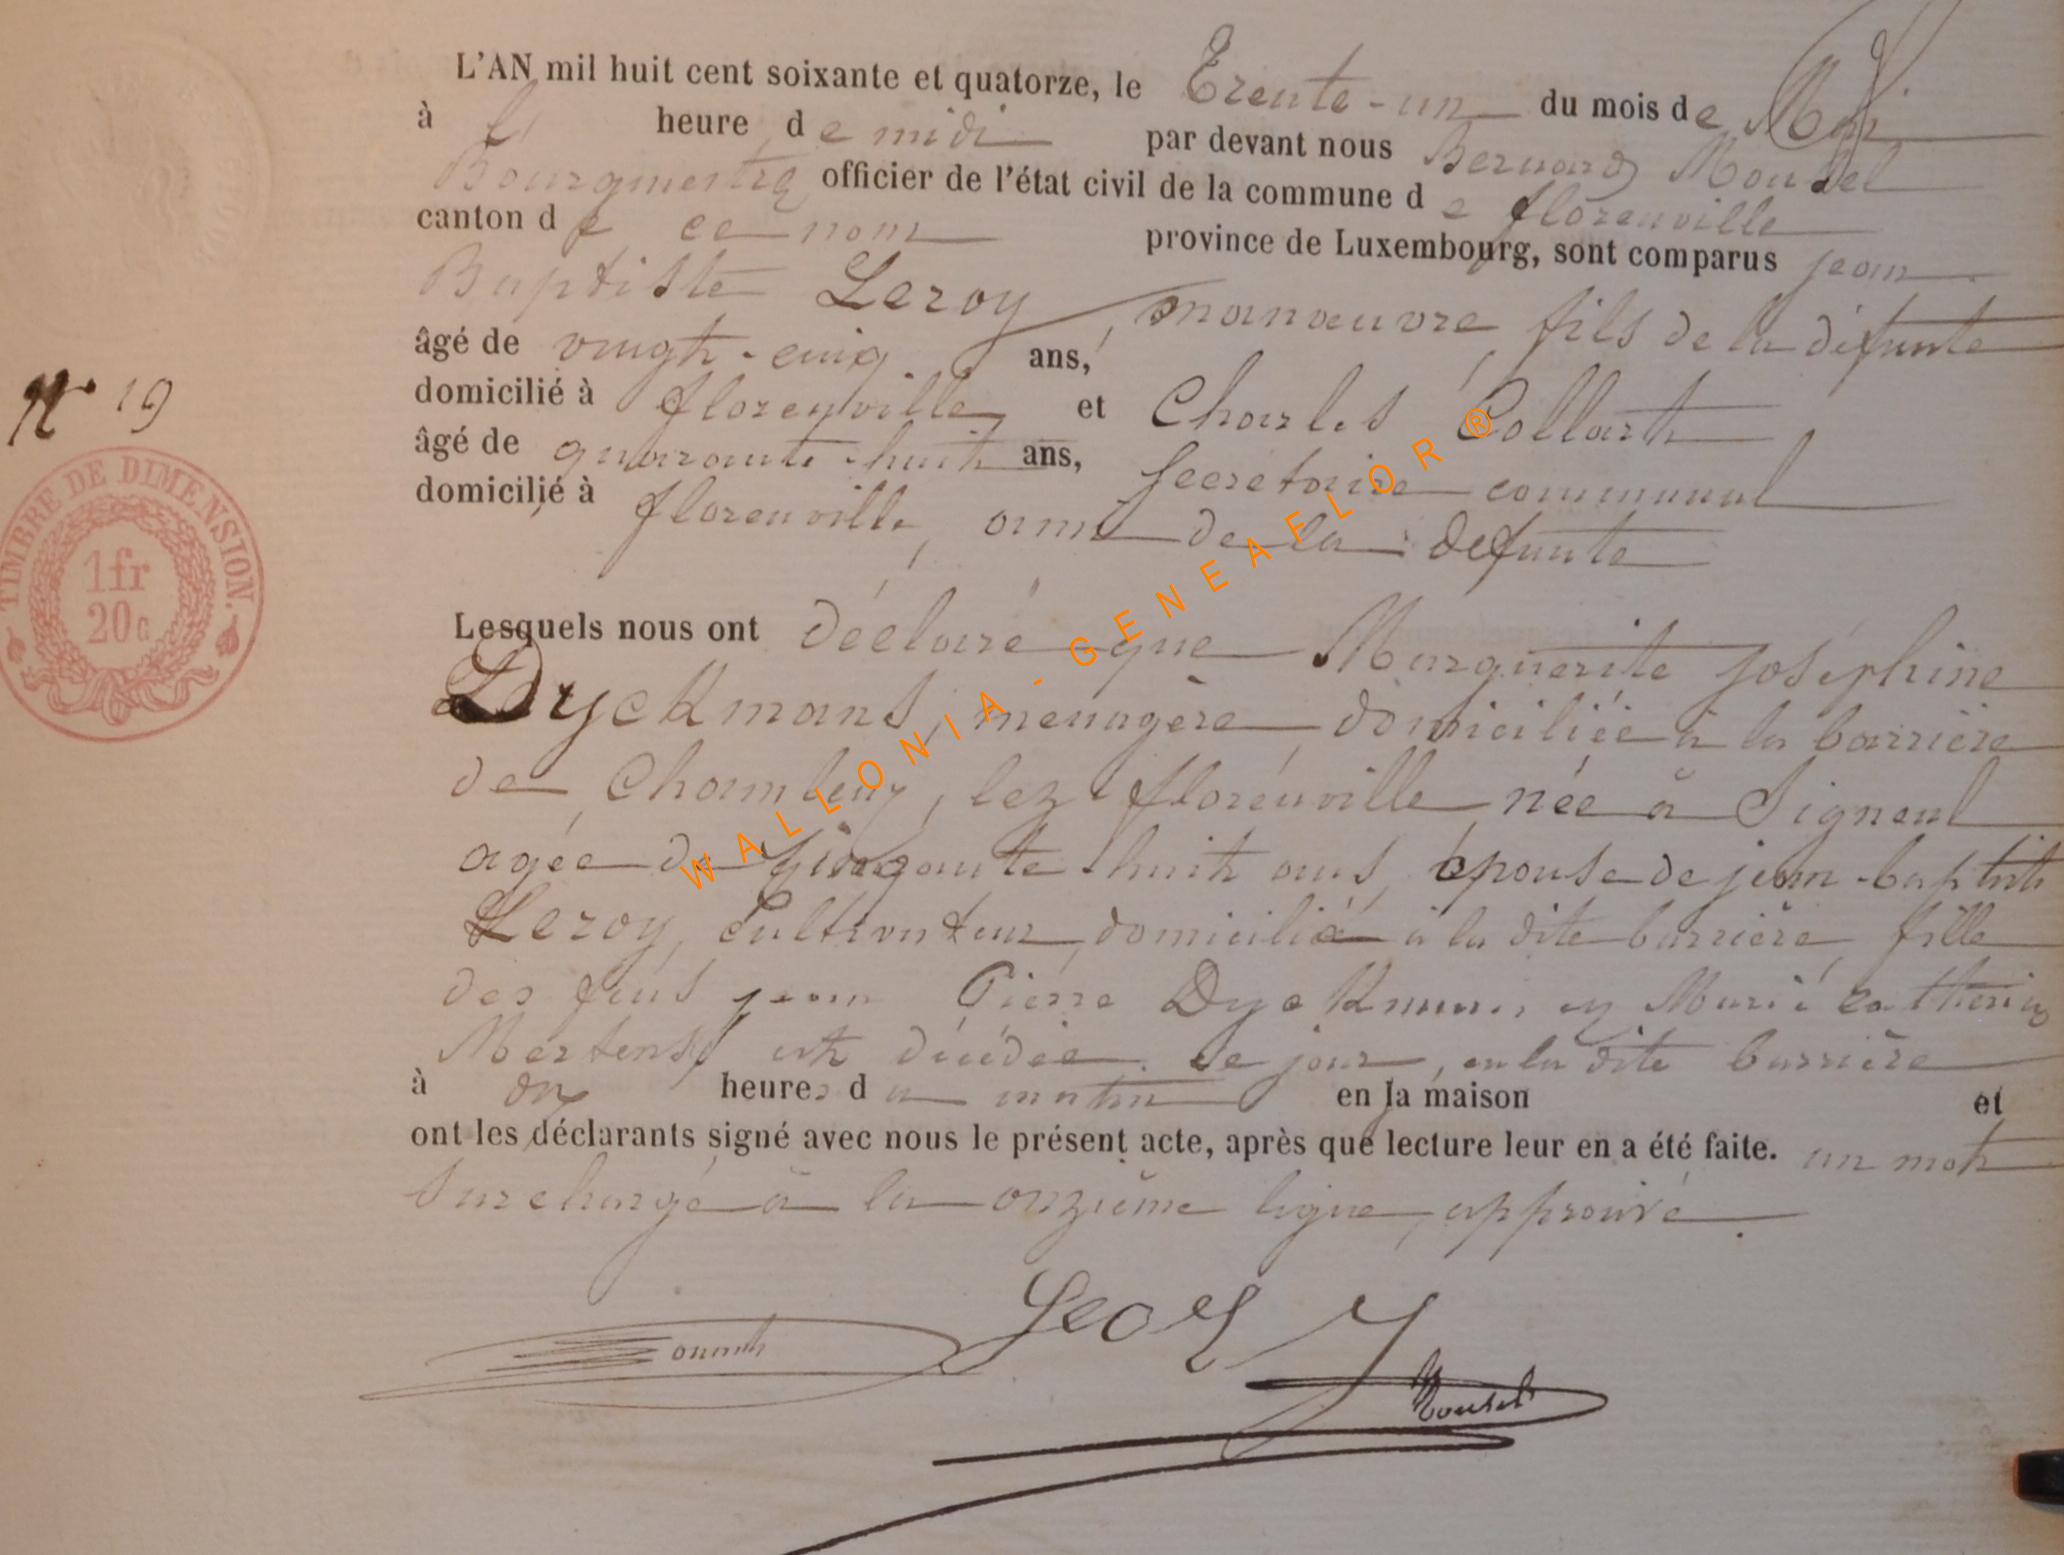 L'AN mil huit cent soixante et quatorze, le Trente-un du mois de Mai
à heure de midi par devant nous Bernard Mousel
Bourgmestre officier de l'état civil de la commune de florenville
canton de ce nom province de Luxembourg, sont comparus jean
Baptiste Leroy, manœuvre, fils de la défunte
âgé de vingt-cinq ans,
domicilié à florenville, et Charles Collart
âgé de quarante-huit ans, secrétaire communal
domicilié à florenville, ami de la défunte
N° 19
TIMBRE DE DIMENSION.
1fr
20c
Lesquels nous ont déclaré que Marguerite joséphine
Dyckmans, ménagère, domiciliée à la barrière
de Chamleux, lez florenville née à Signeul
agée de huit ans, épouse de jean-baptiste
Leroy, cultivateur, domicilié à la dite barrière, fille
des feus jean Pierre Dyckmans et Marie catherine
Mertens, est décédée ce jour, en la dite barrière
à dix heures du matin en la maison et
ont les déclarants signé avec nous le présent acte, après que lecture leur en a été faite. un mot
surchargé à la onzième ligne, approuvé.
Leroy
Mousel
WALLONIA - GENEAFLOR ®